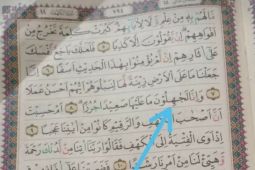 مَّا لَهُم بِهِۦ مِنْ عِلْمٍ وَلَا لِأٓبَآئِهِمْ كَبُرَتْ كَلِمَةً تَخْرُجُ مِنْ
أَفْوَٰهِهِمْ إِن يَقُولُونَ إِلَّا كَذِبًا ٥ فَلَعَلَّكَ بَٰخِعٌ نَّفْسَكَ
عَلَىٰٓ ءَاثَٰرِهِمْ إِن لَّمْ يُؤْمِنُوا۟ بِهَٰذَا ٱلْحَدِيثِ أَسَفًا ٦ إِنَّا
جَعَلْنَا مَا عَلَى ٱلْأَرْضِ زِينَةً لَّهَا لِنَبْلُوَهُمْ أَيُّهُمْ أَحْسَنُ عَمَلًا
٧ وَإِنَّا لَجَٰعِلُونَ مَا عَلَيْهَا صَعِيدًا جُرُزًا ٨ أَمْ حَسِبْتَ
أَنَّ أَصْحَٰبَ ٱلْكَهْفِ وَٱلرَّقِيمِ كَانُوا۟ مِنْ ءَايَٰتِنَا عَجَبًا ٩
إِذْ أَوَى ٱلْفِتْيَةُ إِلَى ٱلْكَهْفِ فَقَالُوا۟ رَبَّنَآ ءَاتِنَا مِن لَّدُنكَ رَحْمَةً
وَهَيِّئْ لَنَا مِنْ أَمْرِنَا رَشَدًا ١٠